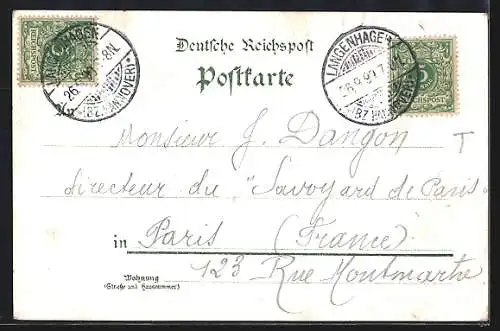 Deutsche Reichspost
Postkarte
LANGENHAGEN
26
8N.
(BZ. HANNOVER)
LANGENHAGEN
(BZ. HANNOVER)
REICHSPOST
5
Monsieur J. Dangon
T
directeur du "Savoyard de Paris"
in Paris (France)
123 Rue Montmartre
Wohnung
(Straße und Hausnummer)